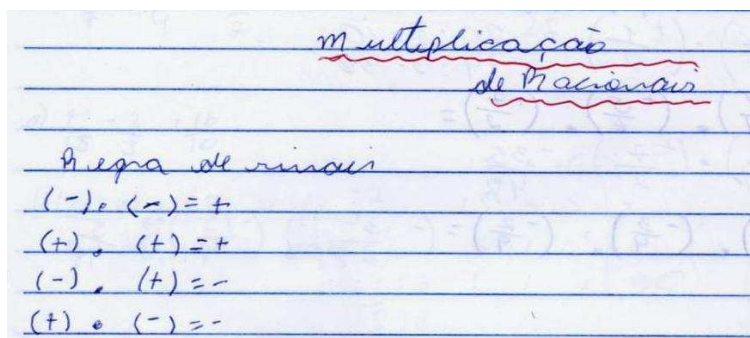 Multiplicação
de Racionais
Regra de sinais
(-). (-) = +
(+). (+) = +
(-). (+) = -
(+). (-) = -